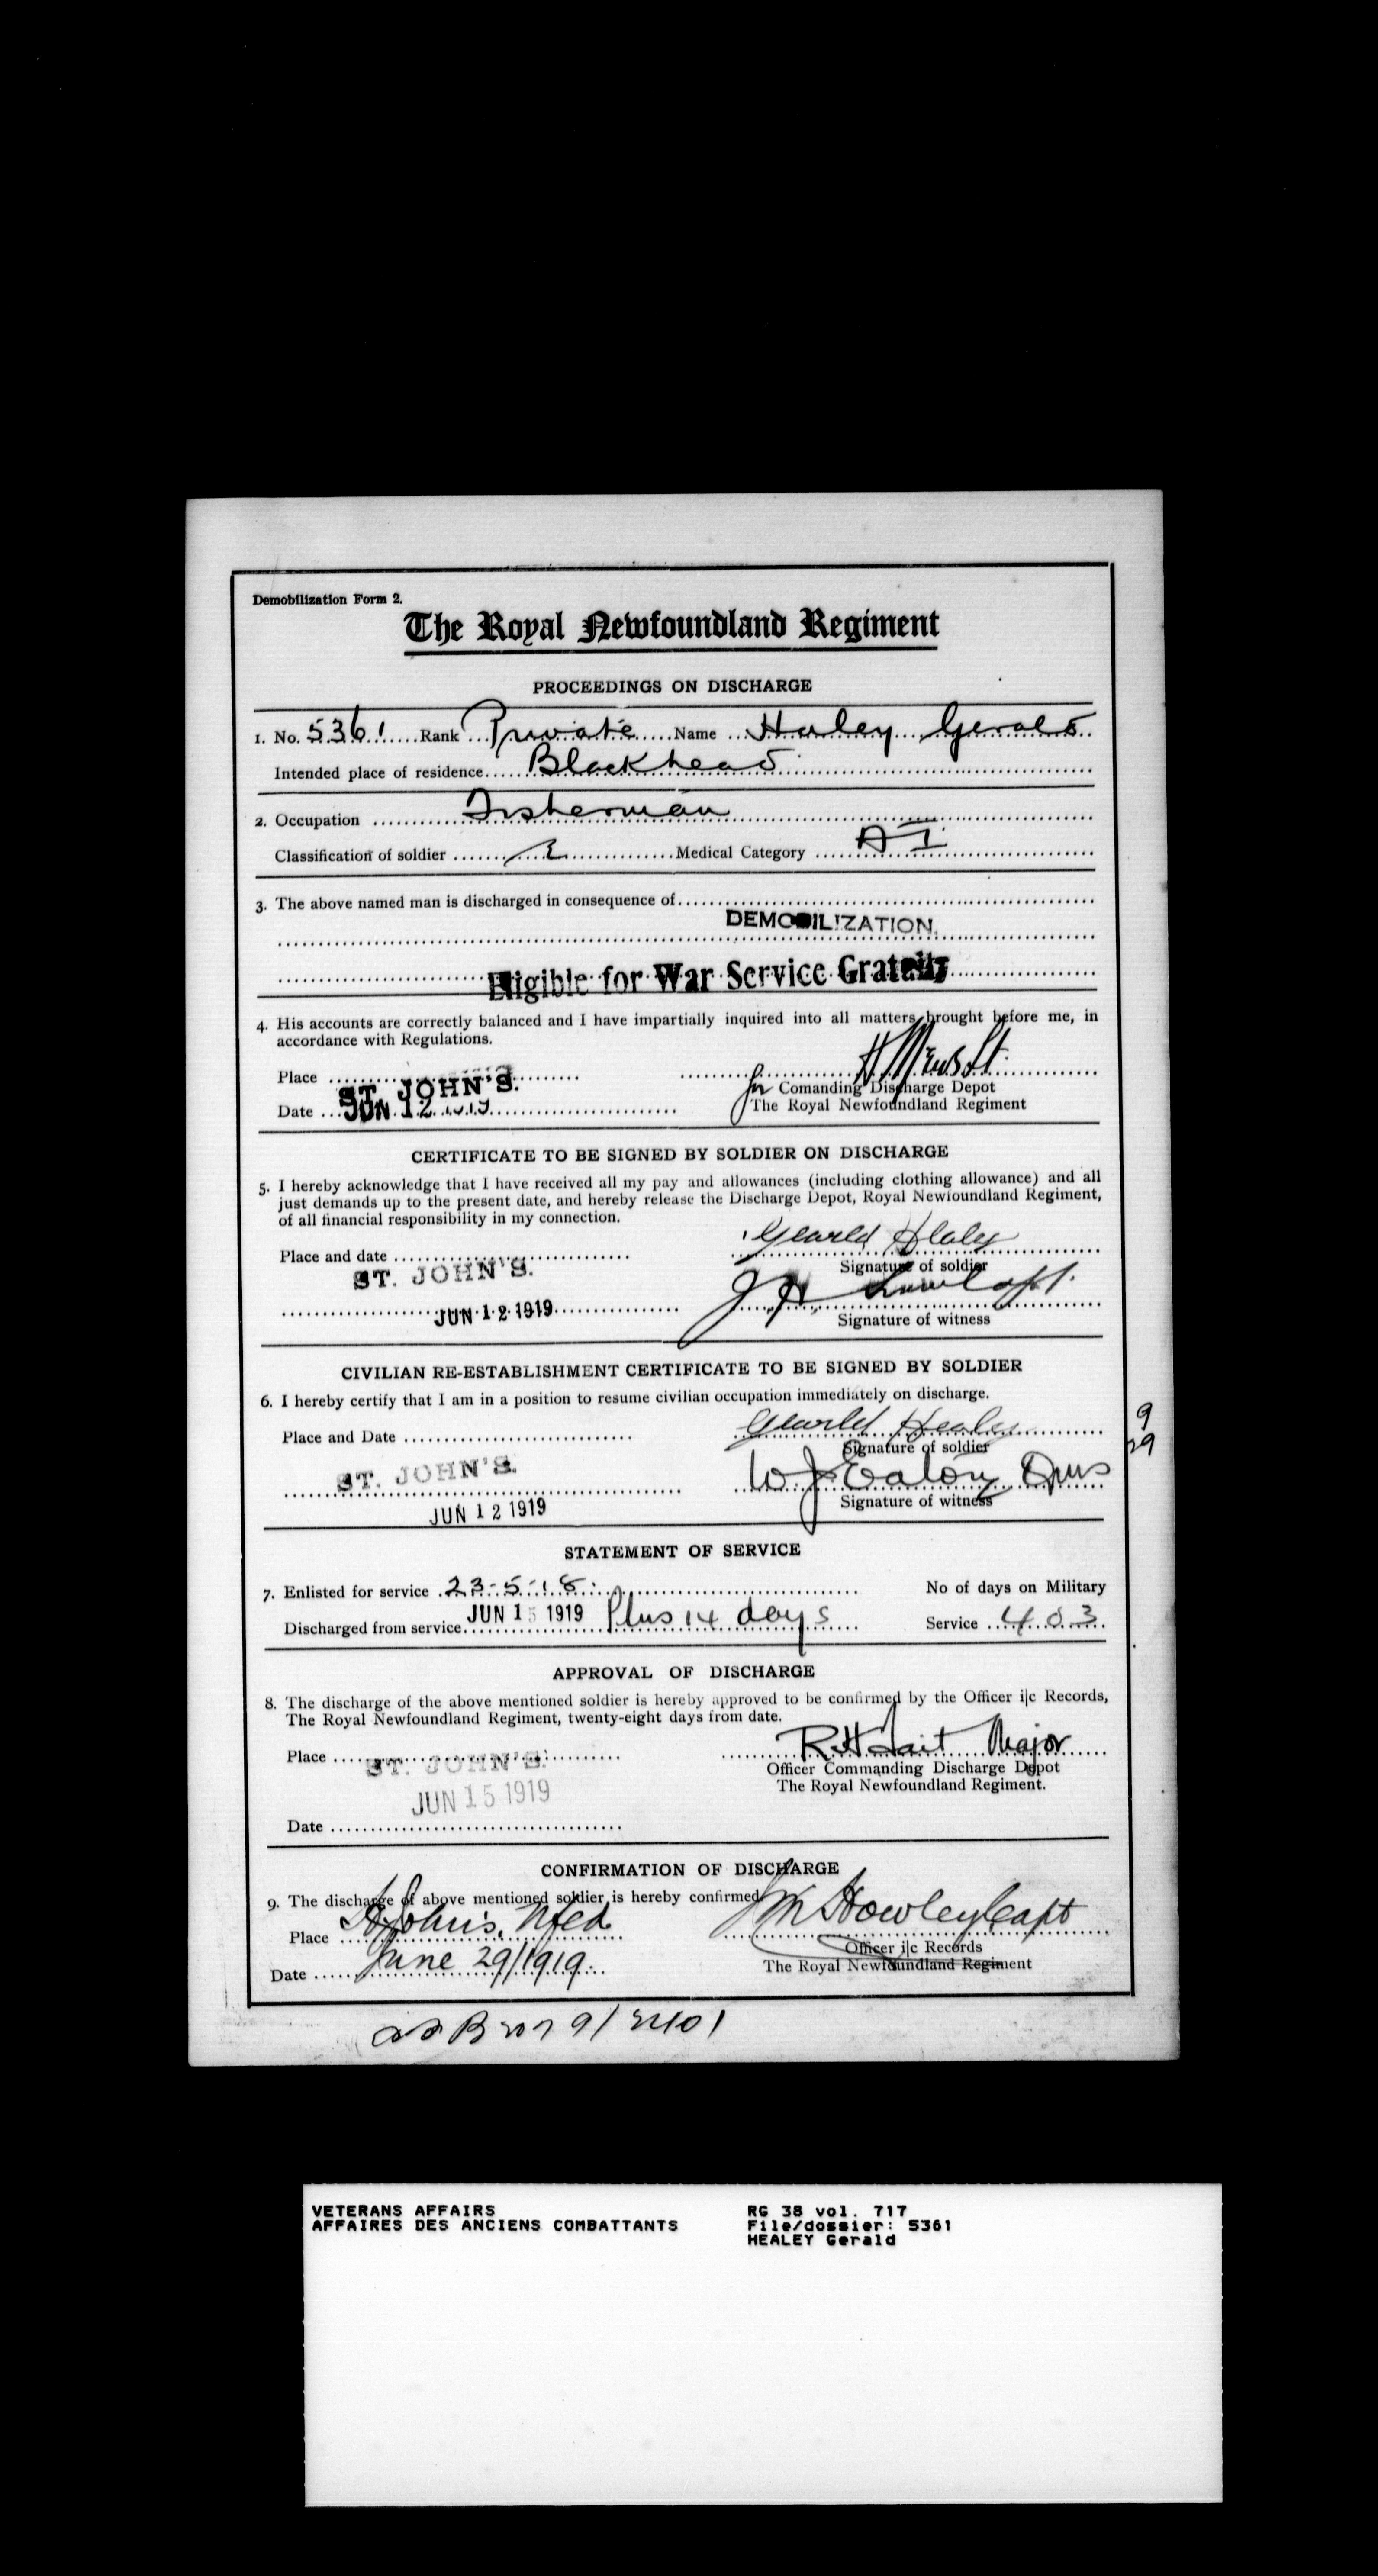 Demobilization Form 2.
The Royal Newfoundland Regiment
PROCEEDINGS ON DISCHARGE
1. No. 5361 Rank Private Name Haley Gerald
Intended place of residence Blackhead
2. Occupation Fisherman
Classification of soldier Medical Category A I
3. The above named man is discharged in consequence of
DEMOBILIZATION.
Eligible for War Service Gratuity
4. His accounts are correctly balanced and I have impartially inquired into all matters brought before me, in
accordance with Regulations.
Place ST. JOHN'S.
for Comanding Discharge Depot
Date JUN 12 1919
The Royal Newfoundland Regiment
CERTIFICATE TO BE SIGNED BY SOLDIER ON DISCHARGE
5. I hereby acknowledge that I have received all my pay and allowances (including clothing allowance) and all
just demands up to the present date, and hereby release the Discharge Depot, Royal Newfoundland Regiment,
of all financial responsibility in my connection.
Gearld Haley
Place and date
ST. JOHN'S.
Signature of soldier
JUN 12 1919
Signature of witness
CIVILIAN RE-ESTABLISHMENT CERTIFICATE TO BE SIGNED BY SOLDIER
6. I hereby certify that I am in a position to resume civilian occupation immediately on discharge.
Gearld Healy
Place and Date
Signature of soldier
9
29
ST. JOHN'S.
W J Eaton
Signature of witness
JUN 12 1919
STATEMENT OF SERVICE
7. Enlisted for service 23-5-18. No of days on Military
Discharged from service JUN 15 1919 Plus 14 days Service 403
APPROVAL OF DISCHARGE
8. The discharge of the above mentioned soldier is hereby approved to be confirmed by the Officer i|c Records,
The Royal Newfoundland Regiment, twenty-eight days from date.
Place ST. JOHN'S. R H Tait Major
Officer Commanding Discharge Depot
The Royal Newfoundland Regiment.
JUN 15 1919
Date
CONFIRMATION OF DISCHARGE
9. The discharge of above mentioned soldier is hereby confirmed
Place St John's, Nfld Howley Capt
Officer i|c Records
Date June 29/1919. The Royal Newfoundland Regiment
VETERANS AFFAIRS RG 38 vol. 717
AFFAIRES DES ANCIENS COMBATTANTS File/dossier: 5361
HEALEY Gerald